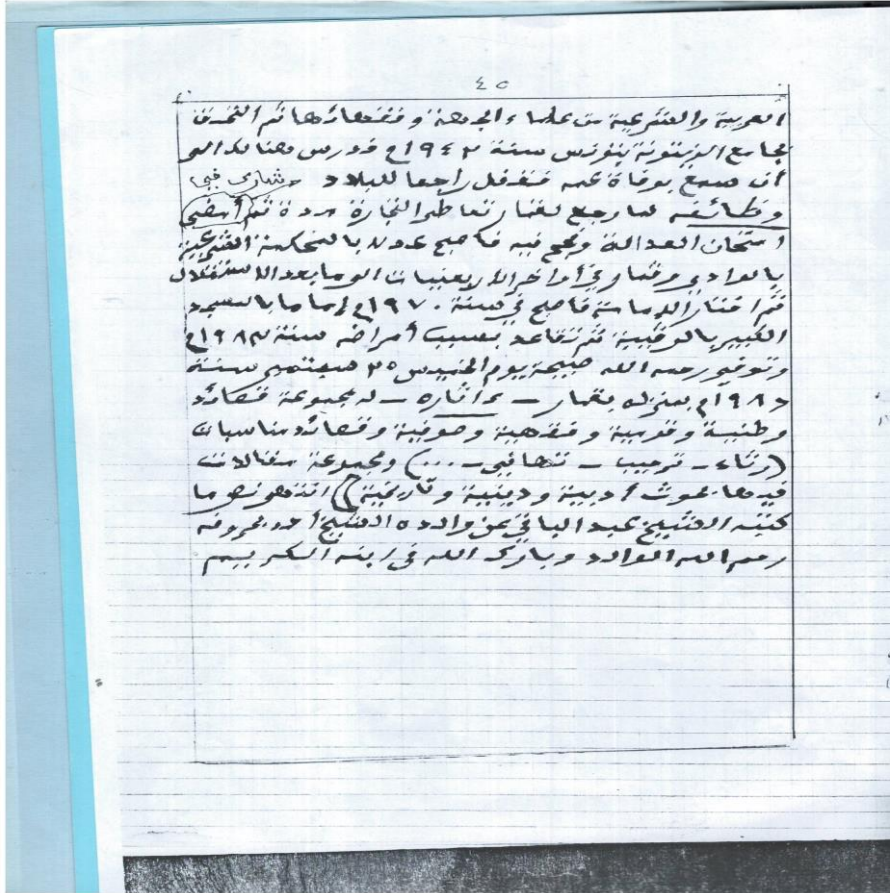 ٤٥
العربية والشرعية من علماء الجهة وفقهائها ثم التحق
بجامع الزيتونة بتونس سنة ١٩٤٣م فدرس هنالك الى
أن سمع بوفاة عمه فقفل راجعا للبلاد شارك في
وظائفه لما رجع لقمار تعاطى التجارة مدة ثم أمضى
امتحان العدالة ونجح فيه فأصبح عدلا بالمحكمة الشرعية
بالوادي وقمار في أواخر الأربعينيات الى ما بعد الاستقلال
ثم اختار الإمامة فأصبح في سنة ١٩٧٠م إماما بالمسجد
الكبير بالرقيبة ثم تقاعد بسبب أمراض سنة ١٩٨٣م
وتوفي رحمه الله صبيحة يوم الخميس ٢٥ سبتمبر سنة
١٩٨٦م بمنزله بقمار – آثاره – له مجموعة قصائد
وطنية وقومية وفقهية وصوفية وقصائد مناسبات
(رثاء – ترحيب – تهاني – ...) ومجموعة مقالات
فيها بحوث أدبية ودينية وتاريخية) انتهى نص ما
كتبه الشيخ عبد الباقي عن والده الشيخ أحمد
رحم الله الوالد وبارك الله في ابنه الكريم